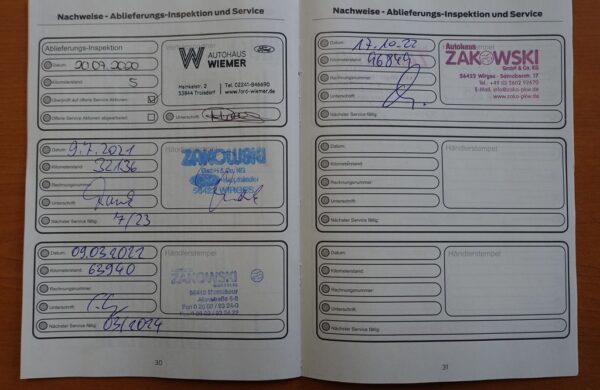 Nachweise - Ablieferungs-Inspektion und Service
Ablieferungs-Inspektion
Datum: 20.09.2020
Kilometerstand: 5
Überprüft auf offene Service Aktionen
Offene Service Aktionen abgearbeitet
AUTOHAUS WIEMER
Ford
53844 Troisdorf
Tel. 02241-946690
www.ford-wiemer.de
Unterschrift
Datum: 9.7.2021
Kilometerstand: 32136
Rechnungsnummer:
Unterschrift:
Nächster Service fällig: 7/23
ZAKOWSKI
GmbH & Co. KG
56422 WIRGES
Datum: 09.03.2022
Kilometerstand: 63940
Rechnungsnummer:
Unterschrift:
Nächster Service fällig: 03/2024
Händlerstempel
ZAKOWSKI
56410 Montabaur
30
Nachweise - Ablieferungs-Inspektion und Service
Datum: 17.10.22
Kilometerstand: 96849
Rechnungsnummer:
Unterschrift:
Nächster Service fällig:
Autohaus
ZAKOWSKI
GmbH & Co. KG
56422 Wirges
Tel.
E-Mail. info@zako-pkw.de
www.zako-pkw.de
Datum:
Kilometerstand:
Rechnungsnummer:
Unterschrift:
Nächster Service fällig:
Händlerstempel
Datum:
Kilometerstand:
Rechnungsnummer:
Unterschrift:
Nächster Service fällig:
Händlerstempel
31